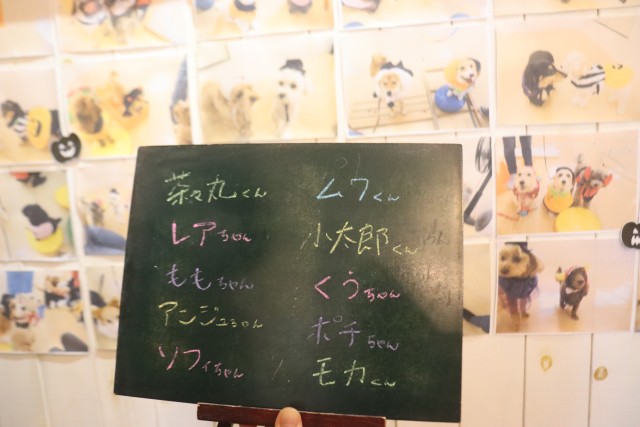 茶々丸くん
レアちゃん
ももちゃん
アンジュちゃん
ソフィちゃん
ムウくん
小太郎くん
くうちゃん
ポチちゃん
モカくん